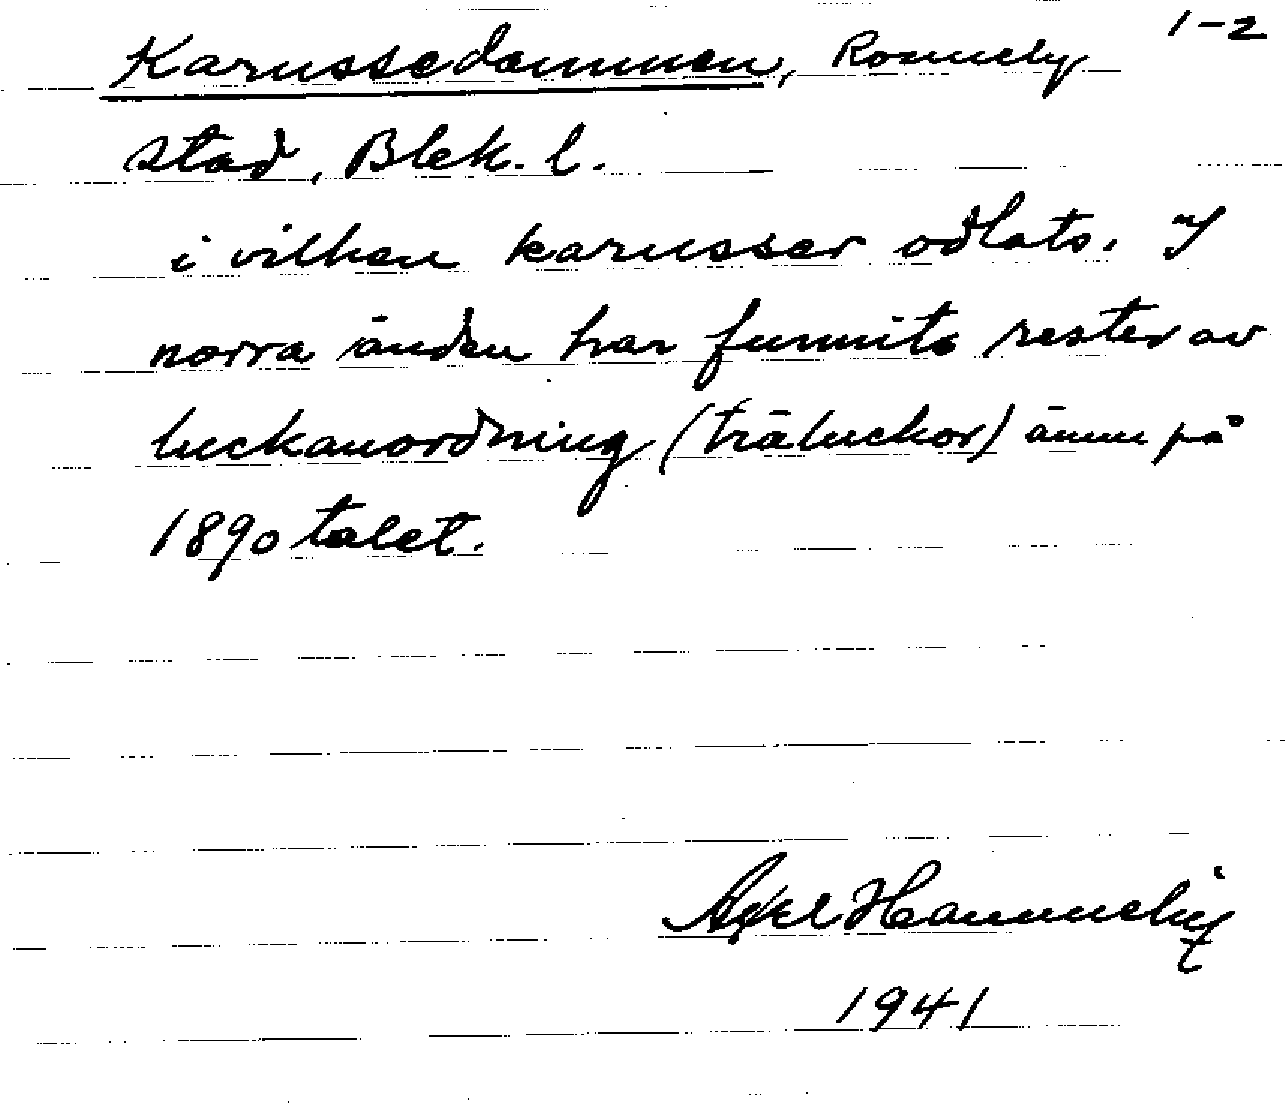 1-2
Karussedammen, Ronneby
stad, Blek. l.
i vilken karusser odlats. I
norra änden har funnits rester av
luckanordning (träluckor) ännu på
1890 talet.
Axel
1941